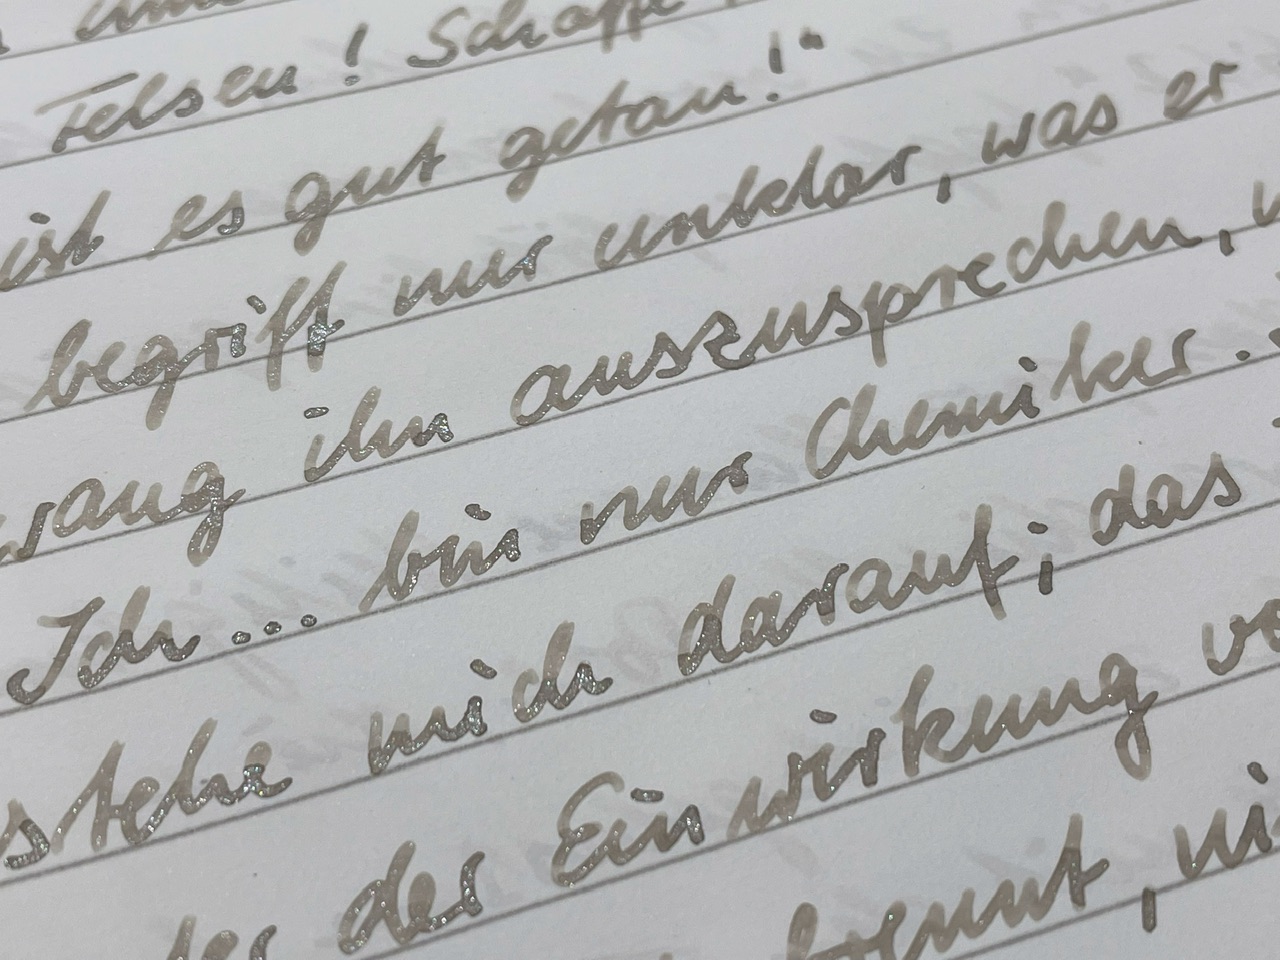 Felsen! Schaffe
ist es gut getan!“
begriff nur unklar, was er
ihn auszusprechen,
Ich... bin nur Chemiker..
stehe mich darauf; das
der Einwirkung
brennt,